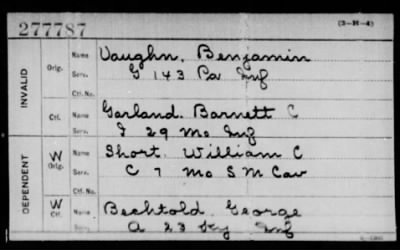 277787
(3-H-4)
INVALID
Orig.
Name Vaughn, Benjamin
Serv. G 143 Pa Inf
Ctf. No.
Ctf.
Name Garland, Barnett C
Serv. I 29 Mo Inf
DEPENDENT
W Orig.
Name Short, William C
Serv. C 7 Mo S M Cav
Ctf. No.
W Ctf.
Name Bechtold, George
Serv. A 23 Ky Inf